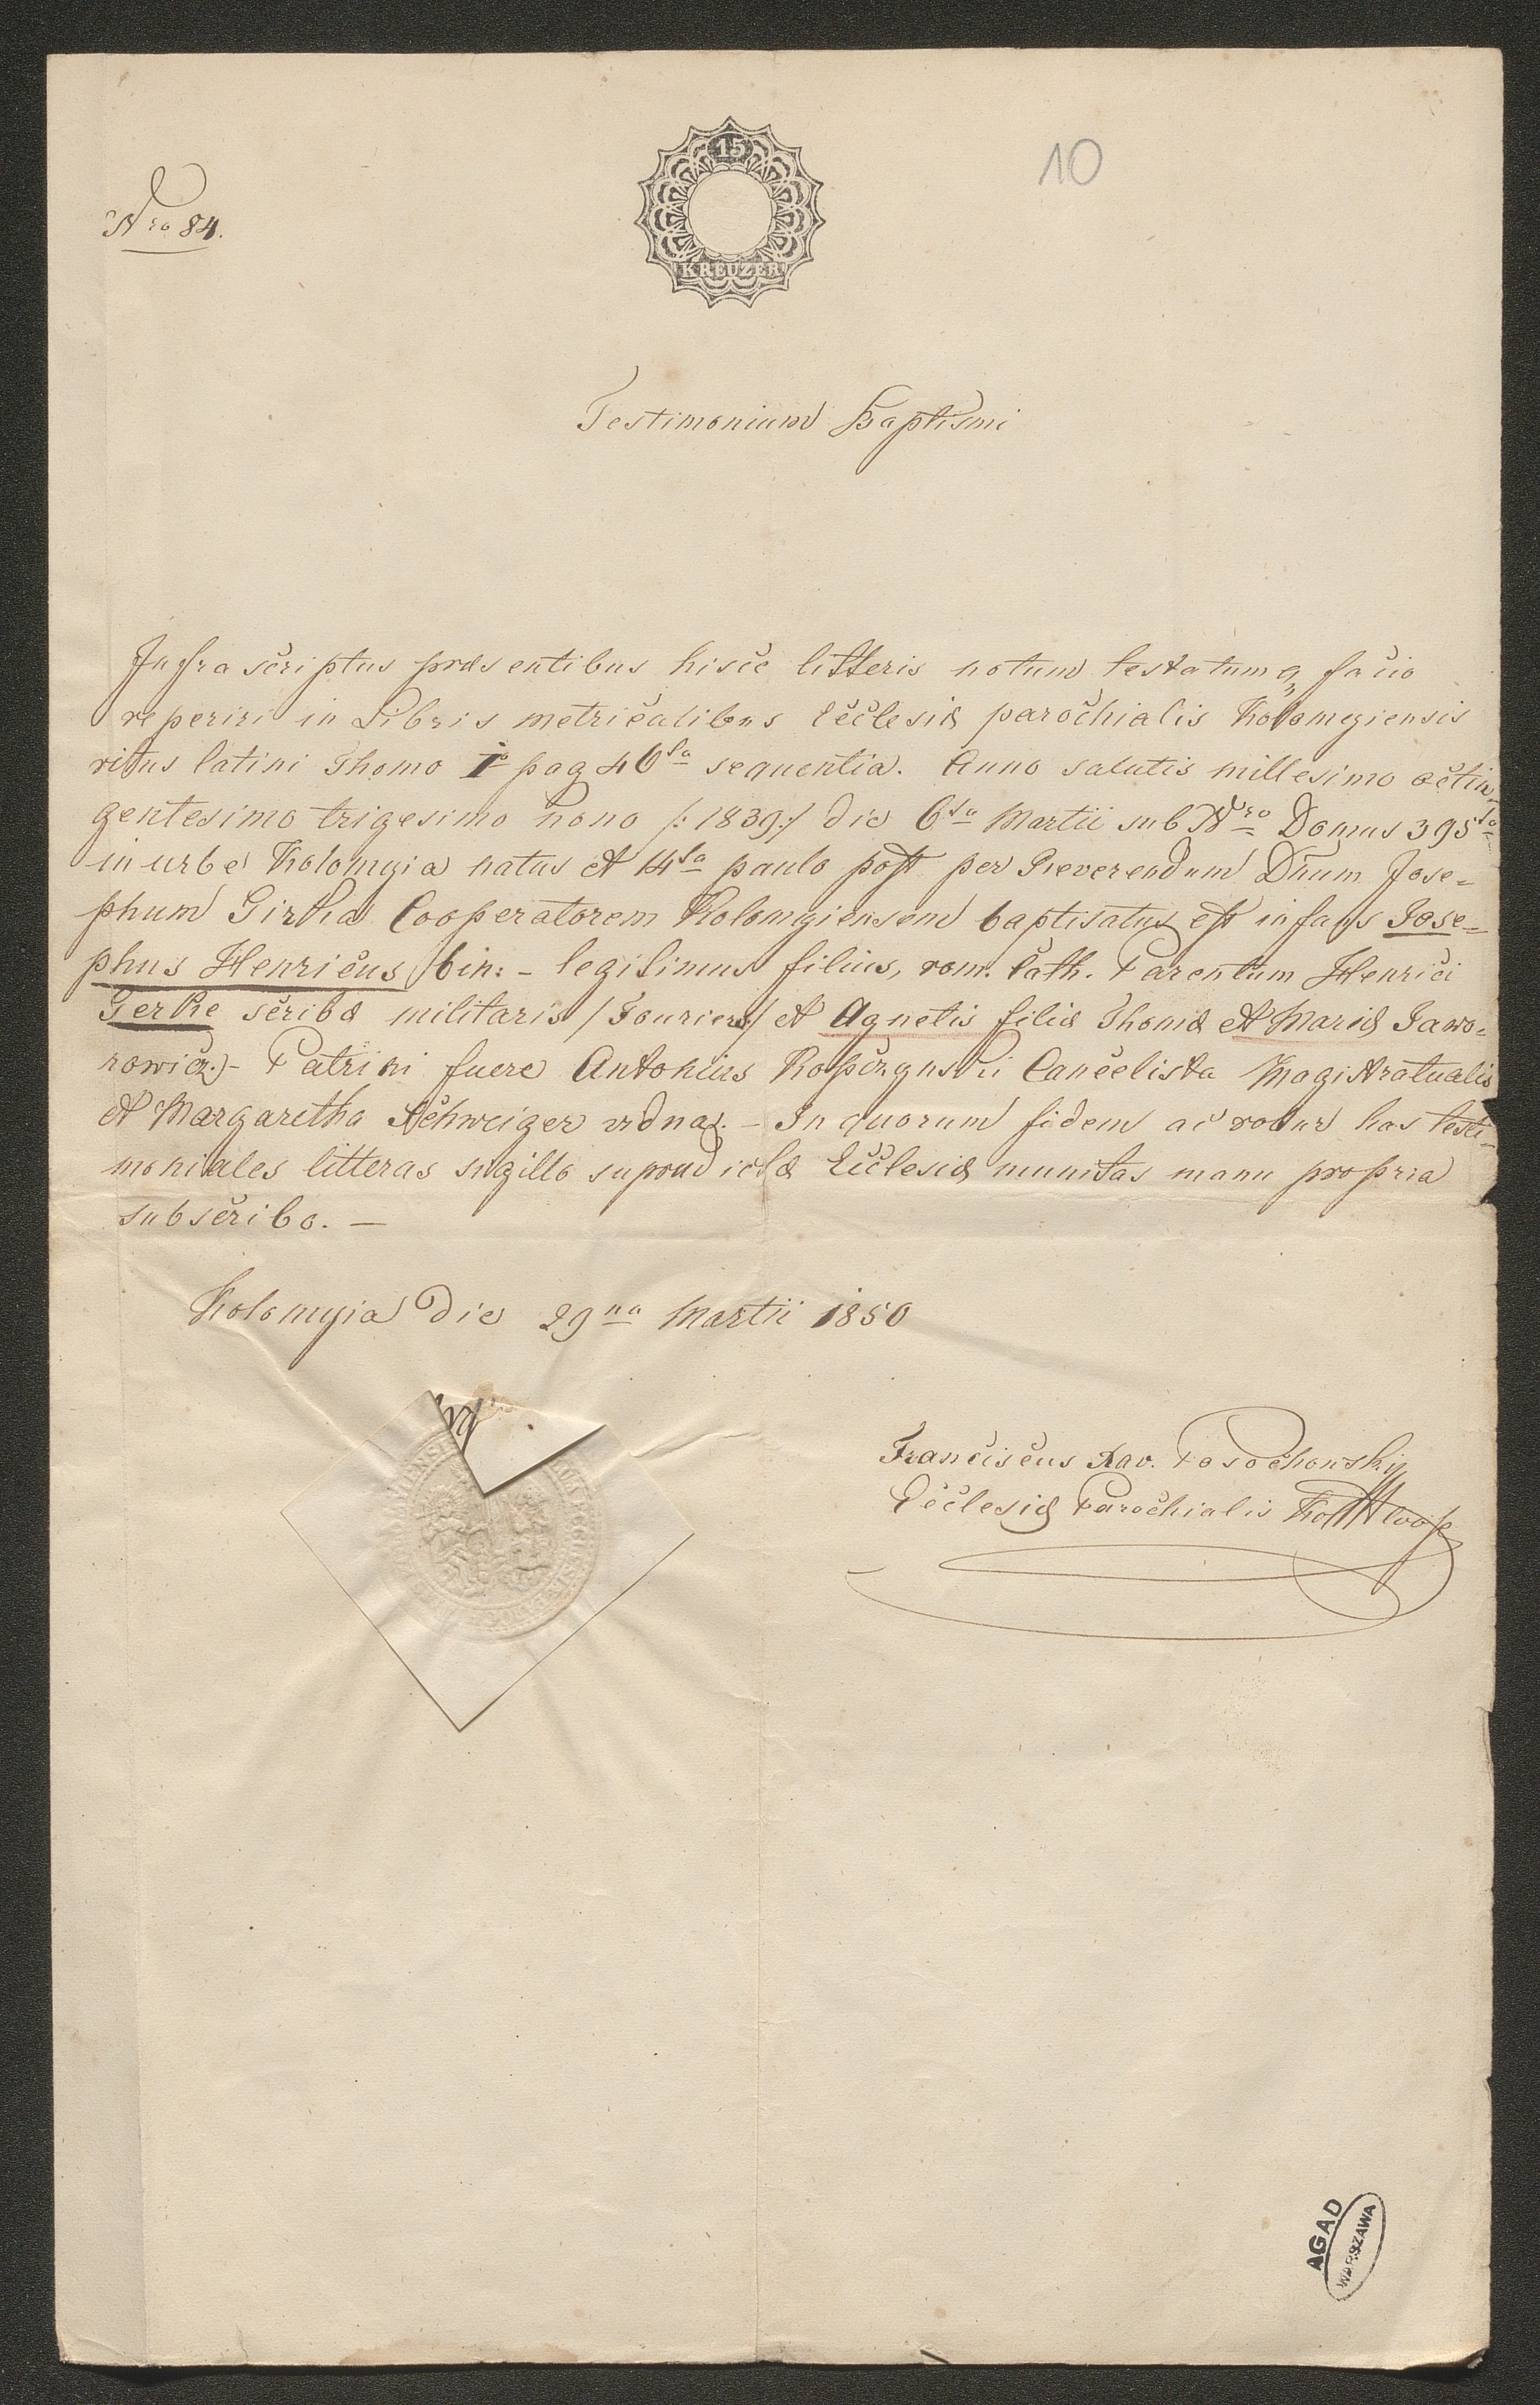 Nro 84.
15
KREUZER
10
Testimonium Baptismi
Infrascriptus præsentibus hisce litteris notum testatumq facio
reperiri in Libris metricalibus Ecclesiæ parochialis Kolomyiensis
ritus latini Thomo I° pag 46ta sequentia. Anno salutis millesimo octin-
gentesimo trigesimo nono /: 1839 :/ die 6ta Martii sub Nro Domus 395ta
in urbe Kolomyia natus et 14ta paulo post per Reverendum Dnum Jose=
phum Girtha Cooperatorem Kolomyiensem baptisatus est infans Jose=
phus Henricus bin: - legitimus filius, rom. Cath. Parentum Henrici
Gerke scribæ militaris / Fouriers / et Agnetis filiæ Thomæ et Mariæ Jawo=
rowicz.)- Patrini fuere Antonius Kopczynski Cancelista Magistratualis
et Margaretha Schweiger vidua. - In quorum fidem ac robur has testi-
moniales litteras sigillo Ecclesiæ munitas manu propria
subscribo. -
Kolomyia die 29na Martii 1850
Franciscus Xav.
Ecclesiæ Parochialis
AGAD
WARSZAWA